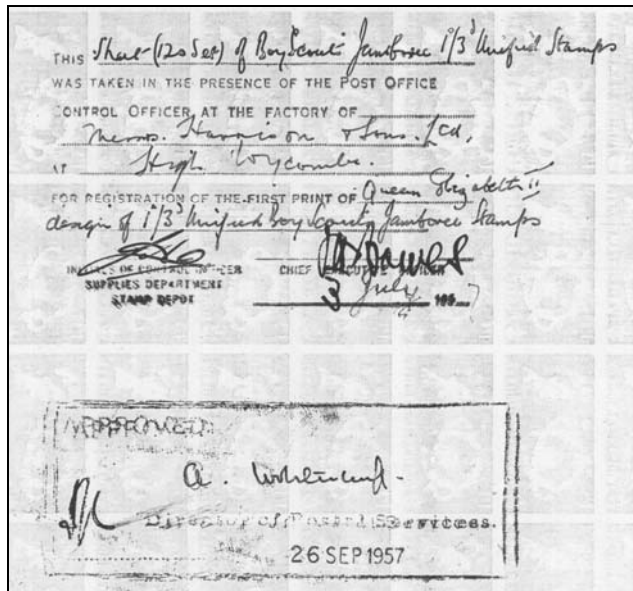 THIS Sheet (120 Set) of Boy Scouts Jamboree 1/3d Unified Stamps
WAS TAKEN IN THE PRESENCE OF THE POST OFFICE
CONTROL OFFICER AT THE FACTORY OF
Messrs. Harrison & Sons. Ltd,
AT High Wycombe.
FOR REGISTRATION OF THE FIRST PRINT OF Queen Elizabeth II
design of 1/3d Unified Boy Scouts Jamboree Stamps
INITIALS OF CONTROL OFFICER
SUPPLIES DEPARTMENT
STAMP DEPOT
CHIEF EXECUTIVE OFFICER
3 July 1957
APPROVED
A.
Director of Postal Services.
26 SEP 1957